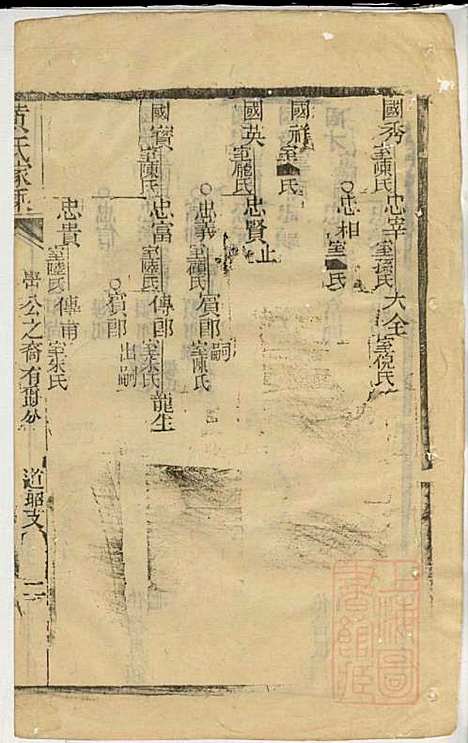 國秀 室陳氏 忠宰 室孫氏 大全 室倪氏
忠相 室 氏
國祥 室 氏
國英 室龐氏 忠賢 止
忠義 室顧氏 賓郎 嗣 室陳氏
國寶 室陳氏 忠富 室陸氏 傳郎 室朱氏 龍生
賓郎 出嗣
忠貴 室陸氏 傳甫 室朱氏
公之裔有
黃氏家
道 支
上海圖書館藏